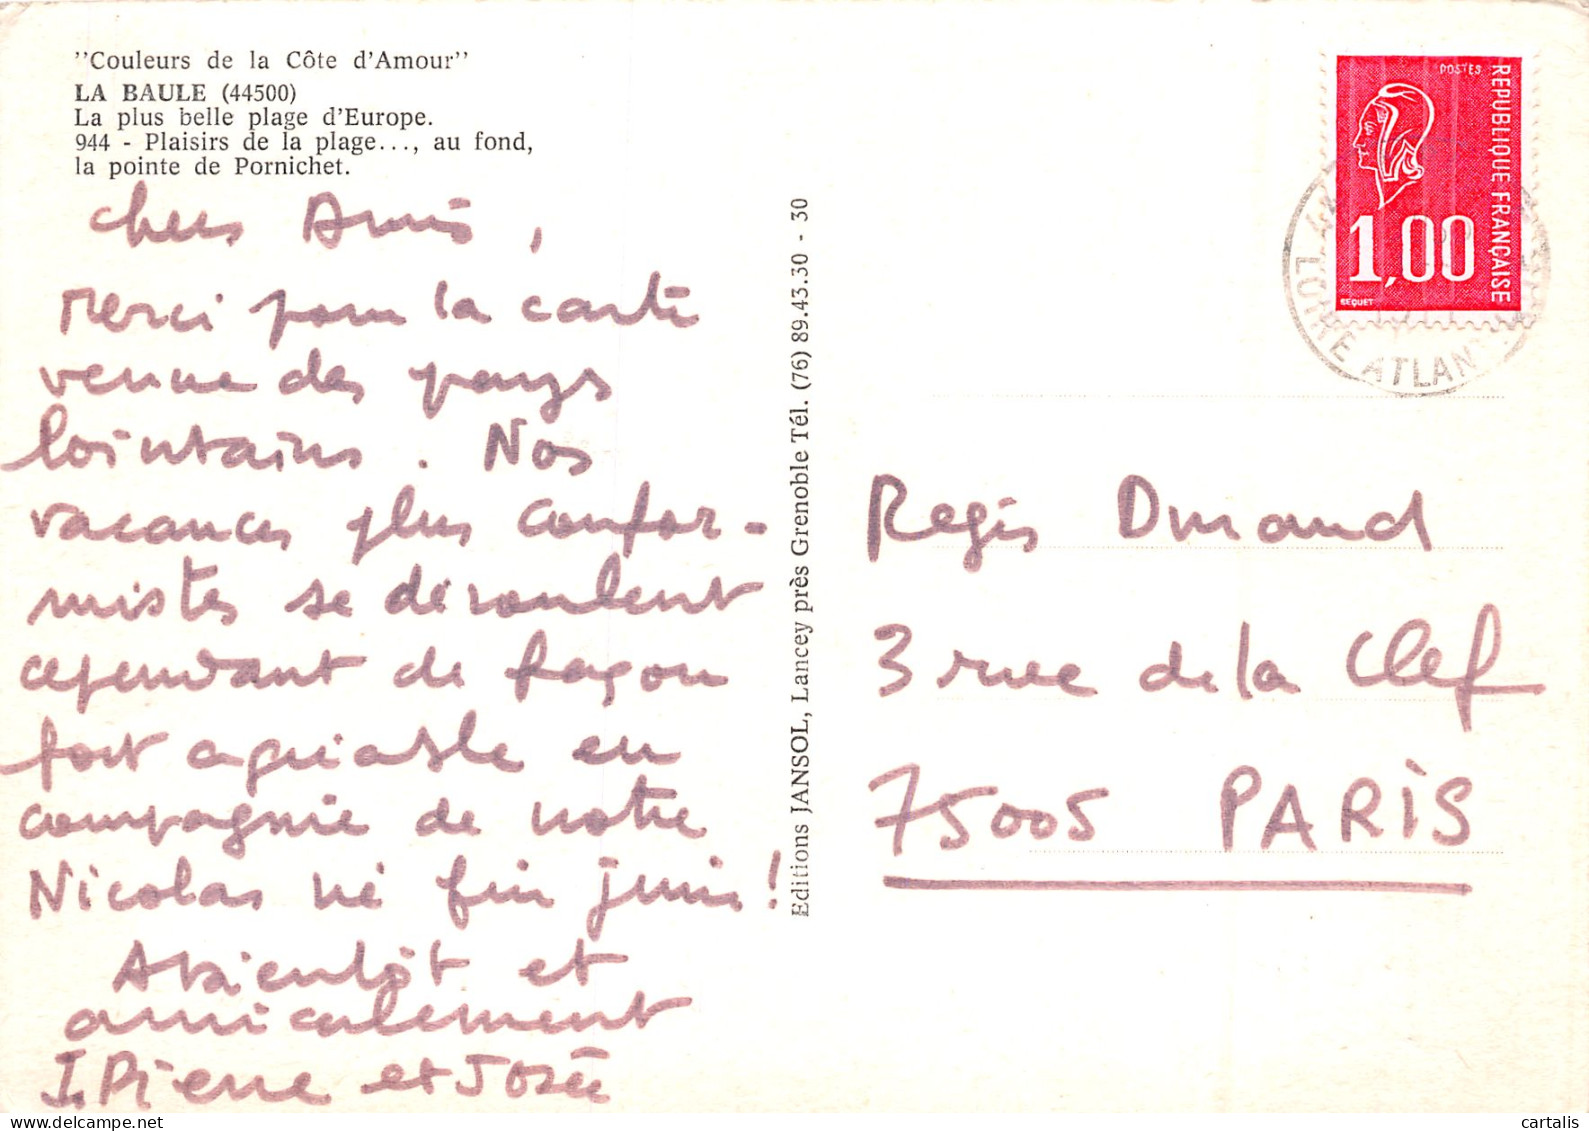 "Couleurs de la Côte d'Amour"
LA BAULE (44500)
La plus belle plage d'Europe.
944 - Plaisirs de la plage..., au fond,
la pointe de Pornichet.
Chers Amis,
Merci pour la carte
venue des pays
lointains. Nos
vacances plus confor-
mistes se déroulent
cependant de façon
fort agréable en
compagnie de notre
Nicolas né fin juin !
A bientôt et
amicalement
J. Pierre et Josée
Editions JANSOL, Lancey près Grenoble Tél. (76) 89.43.30 - 30
POSTES
REPUBLIQUE FRANÇAISE
1,00
BEQUET
44
LOIRE ATLANTIQUE
Regis Durand
3 rue de la Clef
75005 PARIS
cartalis